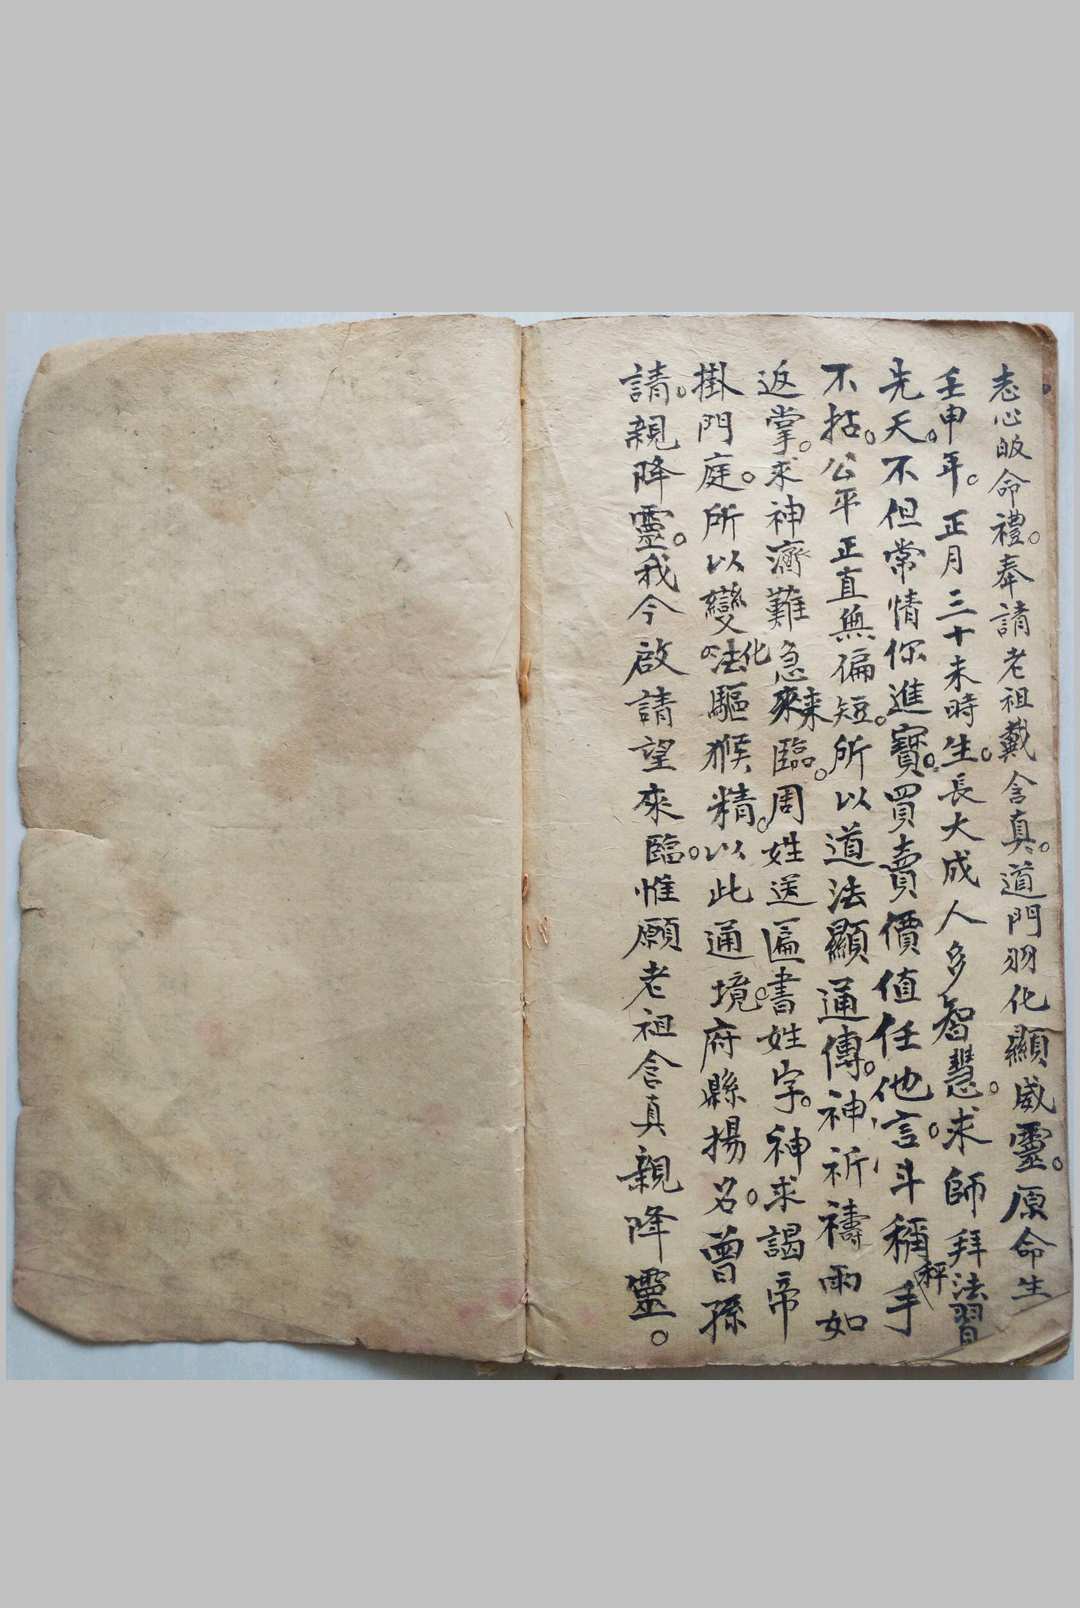 志心皈命禮。奉請老祖戴含真。道門羽化顯威靈。原命生
壬申年。正月三十未時生。長大成人多智慧。求師拜法習
先天。不但常情你進寶。買賣價值任他言。斗稱秤手
不拈。公平正直無偏短。所以道法顯通傳。神祈禱雨如
返掌。求神濟難急來臨。周姓送匾書姓字。神求謁帝
掛門庭。所以變化法驅猴精。以此通境。府縣揚名。曾孫
請。親降靈。我今啟請望來臨。惟願老祖含真親降靈。